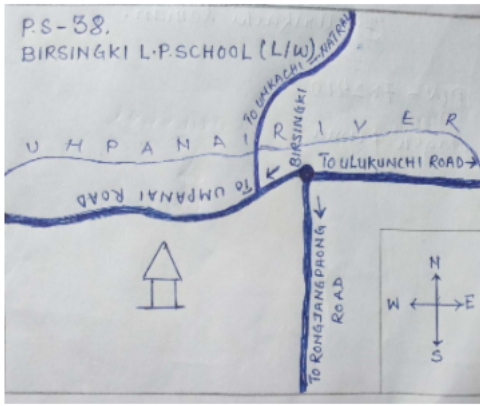 P.S-38.
BIRSINGKI L.P.SCHOOL (L/W)
TO UMKACHI - NATRAL
UMPANAI RIVER
BIRSINGKI
TO ULUKUNCHI ROAD
TO UMPANAI ROAD
TO RONGJANGPAONG
ROAD
N
W E
S